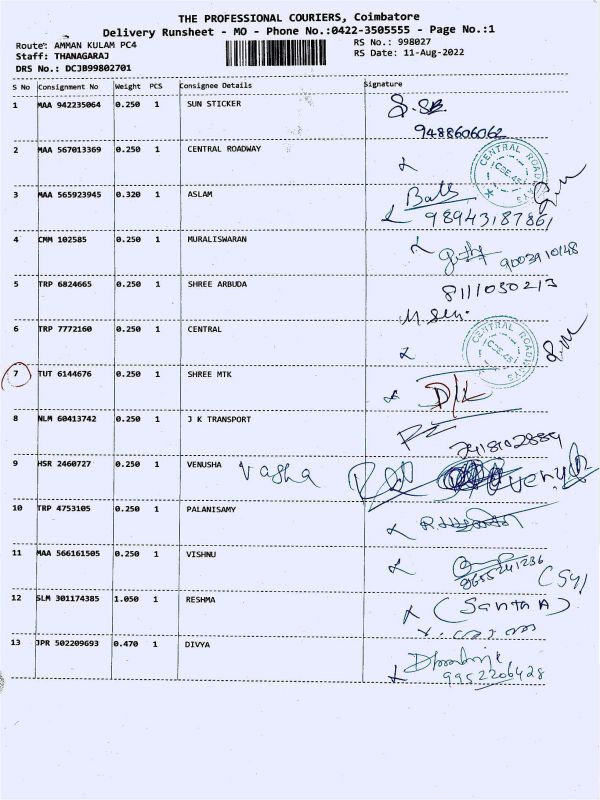 THE PROFESSIONAL COURIERS, Coimbatore
Delivery Runsheet - MO - Phone No.:0422-3505555 - Page No.:1
Route: AMMAN KULAM PC4 RS No.: 998027
Staff: THANAGARAJ RS Date: 11-Aug-2022
DRS No.: DCJB99802701
S No Consignment No Weight PCS Consignee Details Signature
1 MAA 942235064 0.250 1 SUN STICKER
9488606062
2 MAA 567013369 0.250 1 CENTRAL ROADWAY
CENTRAL ROADWAYS
CBE-45
3 MAA 565923945 0.320 1 ASLAM
98943187861
4 CMM 102585 0.250 1 MURALISWARAN
9003910148
5 TRP 6824665 0.250 1 SHREE ARBUDA 8111030213
6 TRP 7772160 0.250 1 CENTRAL
CENTRAL ROADWAYS
CBE-45
7 TUT 6144676 0.250 1 SHREE MTK D/L
8 NLM 60413742 0.250 1 J K TRANSPORT
9 HSR 2460727 0.250 1 VENUSHA
10 TRP 4753105 0.250 1 PALANISAMY
11 MAA 566161505 0.250 1 VISHNU
12 SLM 301174385 1.050 1 RESHMA (Santha)
13 JPR 502209693 0.470 1 DIVYA
9952206428